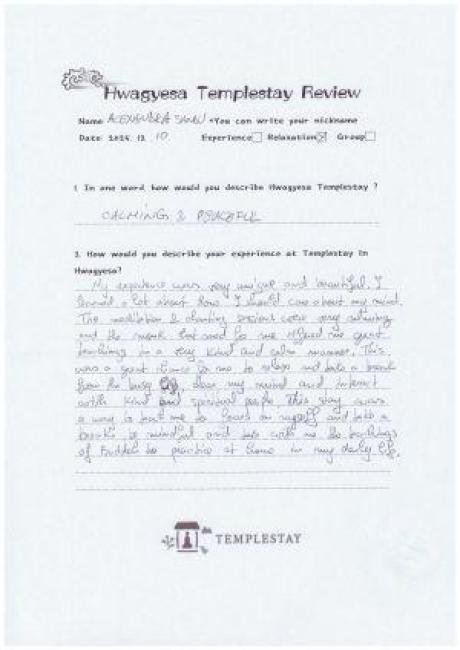 Hwagyesa Templestay Review
Name ALEXANDRA *You can write your nickname
Date 2024. 12. 10 Experience☐ Relaxation☒ Group☐
1. In one word, how would you describe Hwagyesa Templestay ?
CALMING & PEACEFUL
3. How would you describe your experience at Templestay in
Hwagyesa?
My experience was very unique and beautiful. I
learned a lot about how I should care about my mind.
The meditation & chanting sessions were very calming
and the monk that to me offered me great
teachings in a very kind and calm manner. This
was a great chance for me to relax and take a break
from the busy city, clear my mind and interact
with kind and spiritual people. This stay was
a way to me to focus on myself and take a
break, be mindful and take with me the teachings
of Buddha to practice at home in my daily life.
TEMPLESTAY